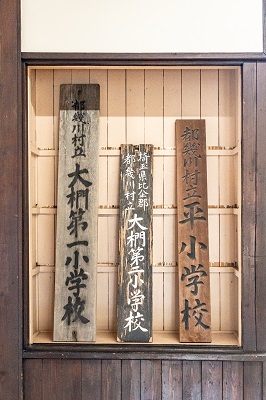 都幾川村立平小学校
埼玉県比企郡
都幾川村立
大椚第二小学校
都幾川村立
大椚第一小学校